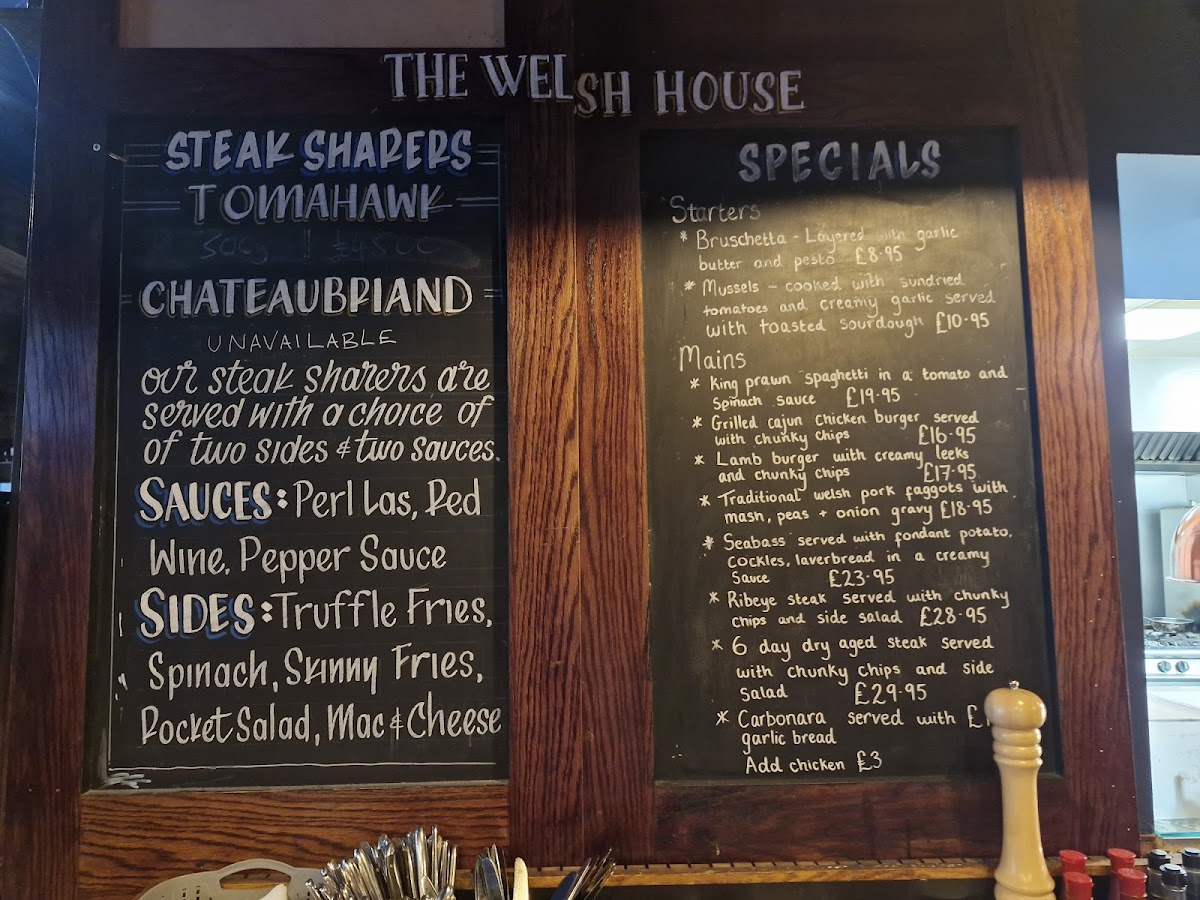 THE WELSH HOUSE
STEAK SHARERS
TOMAHAWK
CHATEAUBRIAND
UNAVAILABLE
our steak sharers are
served with a choice of
of two sides & two sauces.
SAUCES: Perl Las, Red
Wine, Pepper Sauce
SIDES: Truffle Fries,
Spinach, Skinny Fries,
Rocket Salad, Mac & Cheese
SPECIALS
Starters
* Bruschetta - Layered with garlic
butter and pesto £8.95
* Mussels - cooked with sundried
tomatoes and creamy garlic served
with toasted sourdough £10.95
Mains
* King prawn spaghetti in a tomato and
Spinach sauce £19.95
* Grilled cajun chicken burger served
with chunky chips £16.95
* Lamb burger with creamy leeks
and chunky chips £17.95
* Traditional welsh pork faggots with
mash, peas + onion gravy £18.95
* Seabass served with fondant potato,
cockles, laverbread in a creamy
Sauce £23.95
* Ribeye steak served with chunky
chips and side salad £28.95
* 6 day dry aged steak served
with chunky chips and side
salad £29.95
* Carbonara served with
garlic bread
Add chicken £3